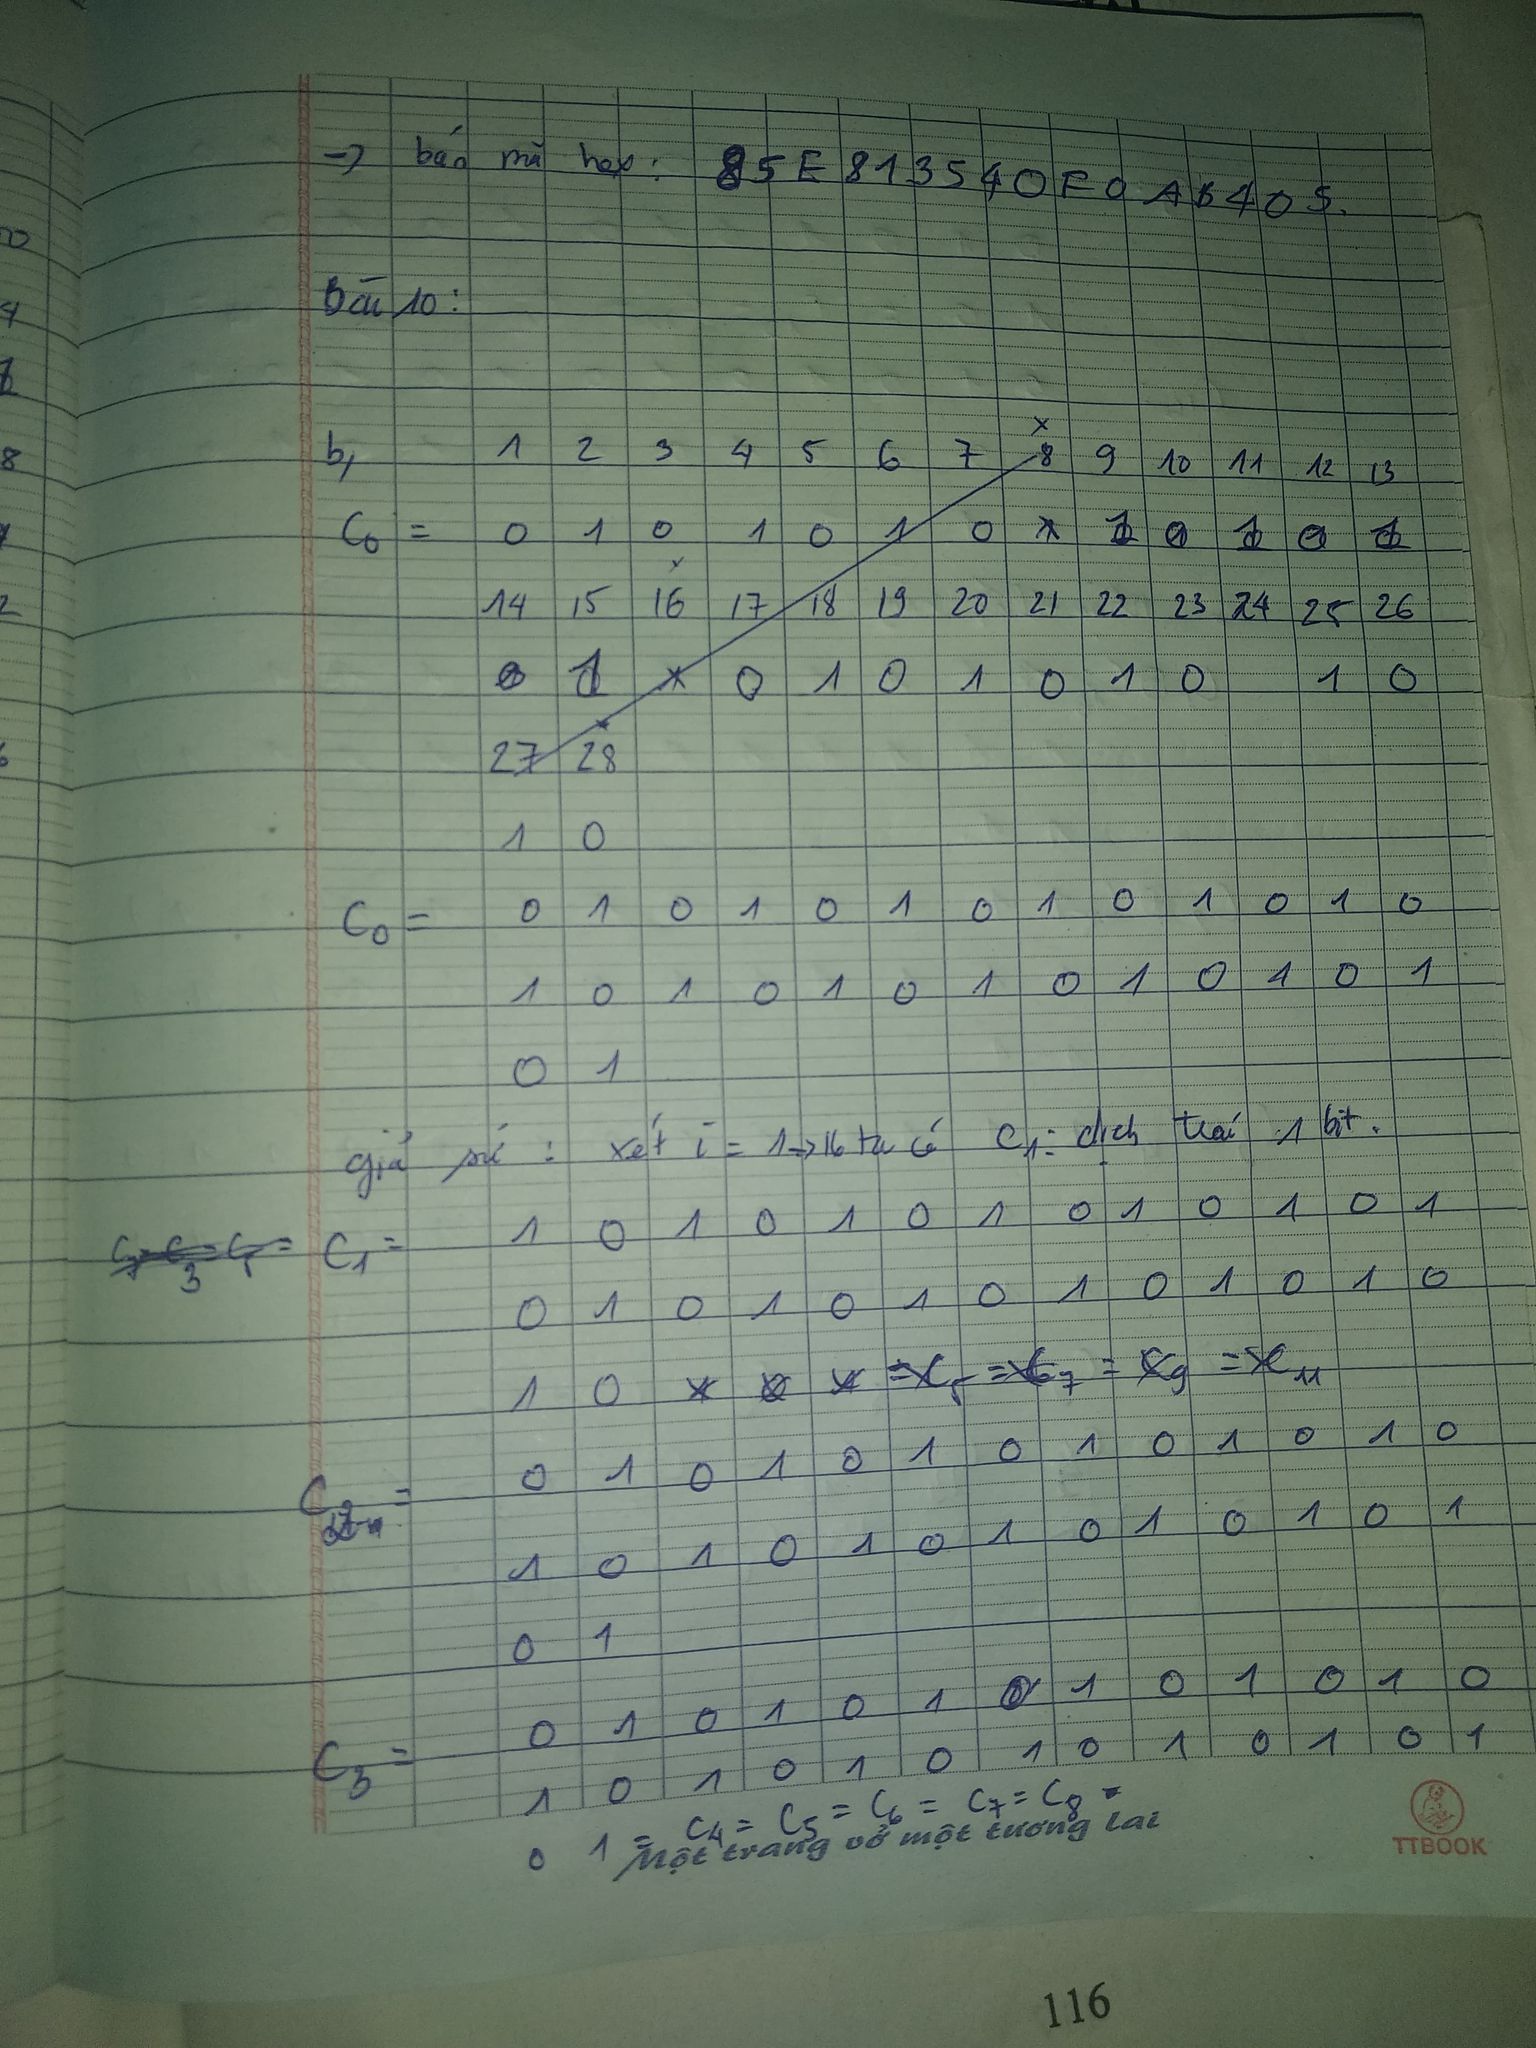 → bản mã hex: 85E813540F0AB405.
Bài 10:
b, 1 2 3 4 5 6 7 8 9 10 11 12 13
C0 = 0 1 0 1 0 1 0 x 1 0 1 0 1
14 15 16 17 18 19 20 21 22 23 24 25 26
0 1 x 0 1 0 1 0 1 0 1 0
27 28
1 0
C0 = 0 1 0 1 0 1 0 1 0 1 0 1 0
1 0 1 0 1 0 1 0 1 0 1 0 1
0 1
giả sử: xét i = 1→16 ta có C1: dịch trái 1 bit.
C1 = 1 0 1 0 1 0 1 0 1 0 1 0 1
0 1 0 1 0 1 0 1 0 1 0 1 0
1 0
C2 = 0 1 0 1 0 1 0 1 0 1 0 1 0
1 0 1 0 1 0 1 0 1 0 1 0 1
0 1
C3 = 0 1 0 1 0 1 0 1 0 1 0 1 0
1 0 1 0 1 0 1 0 1 0 1 0 1
0 1 = C4 = C5 = C6 = C7 = C8 =
Một trang vở một tương lai
TTBOOK
116